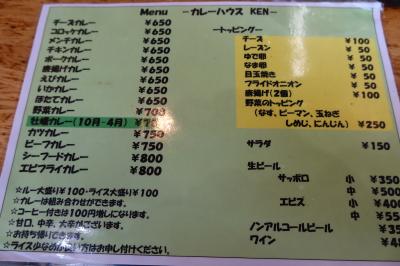 Menu －カレーハウス KEN－
チーズカレー ￥650
コロッケカレー ￥650
メンチカレー ￥650
チキンカレー ￥650
ポークカレー ￥650
唐揚げカレー ￥650
えびカレー ￥650
いかカレー ￥650
ほたてカレー ￥650
野菜カレー ￥700
牡蠣カレー(10月-4月)
カツカレー ￥750
ビーフカレー ￥750
シーフードカレー ￥800
エビフライカレー ￥800
☆ルー大盛り￥100・ライス大盛り￥100
☆カレーは組み合わせができます。
☆コーヒー付きは100円増しになります。
☆甘口、中辛、大辛がございます。
☆お持ち帰りできます。
☆ライス少なめが良い方はお申し付けください。
－トッピング－
チーズ ￥100
レーズン ￥ 50
ゆで卵 ￥ 50
なま卵 ￥ 50
目玉焼き ￥ 50
フライドオニオン ￥ 50
唐揚げ(２個) ￥100
野菜のトッピング
(なす、ピーマン、玉ねぎ
しめじ、にんじん) ￥250
サラダ ￥150
生ビール
サッポロ 小 ￥350
中 ￥500
エビス 小 ￥400
中 ￥55
ノンアルコールビール ￥35
ワイン